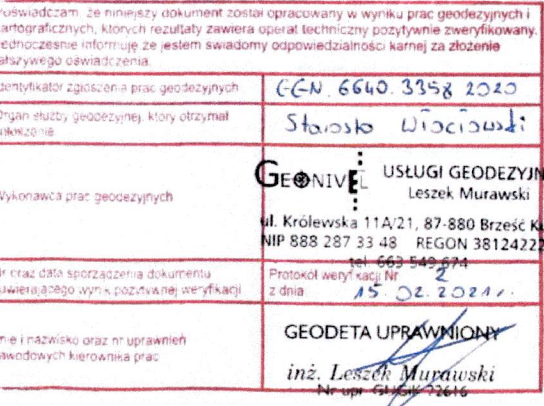 oświadczam, że niniejszy dokument został opracowany w wyniku prac geodezyjnych i
kartograficznych, których rezultaty zawiera operat techniczny pozytywnie zweryfikowany.
ednocześnie informuję że jestem świadomy odpowiedzialności karnej za złożenie
ałszywego oświadczenia.
dentyfikator zgłoszenia prac geodezyjnych
GGN.6640.3358 2020
Organ służby geodezyjnej, który otrzymał
zgłoszenie
Starosta Włocławski
Wykonawca prac geodezyjnych
GEONIVEL
USŁUGI GEODEZYJN
Leszek Murawski
ul. Królewska 11A/21, 87-880 Brześć Ku
NIP 888 287 33 48 REGON 38124222
tel. 663 549 674
Nr oraz data sporządzenia dokumentu
zawierającego wynik pozytywnej weryfikacji
Protokół weryfikacji Nr 2
z dnia 15.02.2021r.
mię i nazwisko oraz nr uprawnień
zawodowych kierownika prac
GEODETA UPRAWNIONY
inż. Leszek Murawski
Nr upr. GUGiK 22616